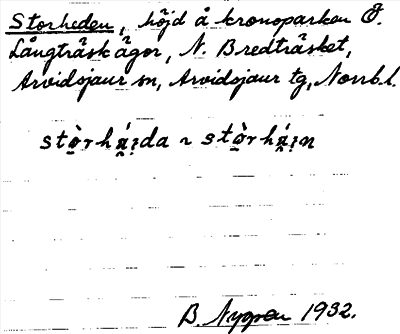 Storheden, höjd å kronoparken Ö.
Långträskågor, N. Bredträsket,
Arvidsjaur sn, Arvidsjaur tg, Norrb.l.
stò̱rhá̯i̯da ~ stò̱rhá̯i̯n
B. Nygren 1932.